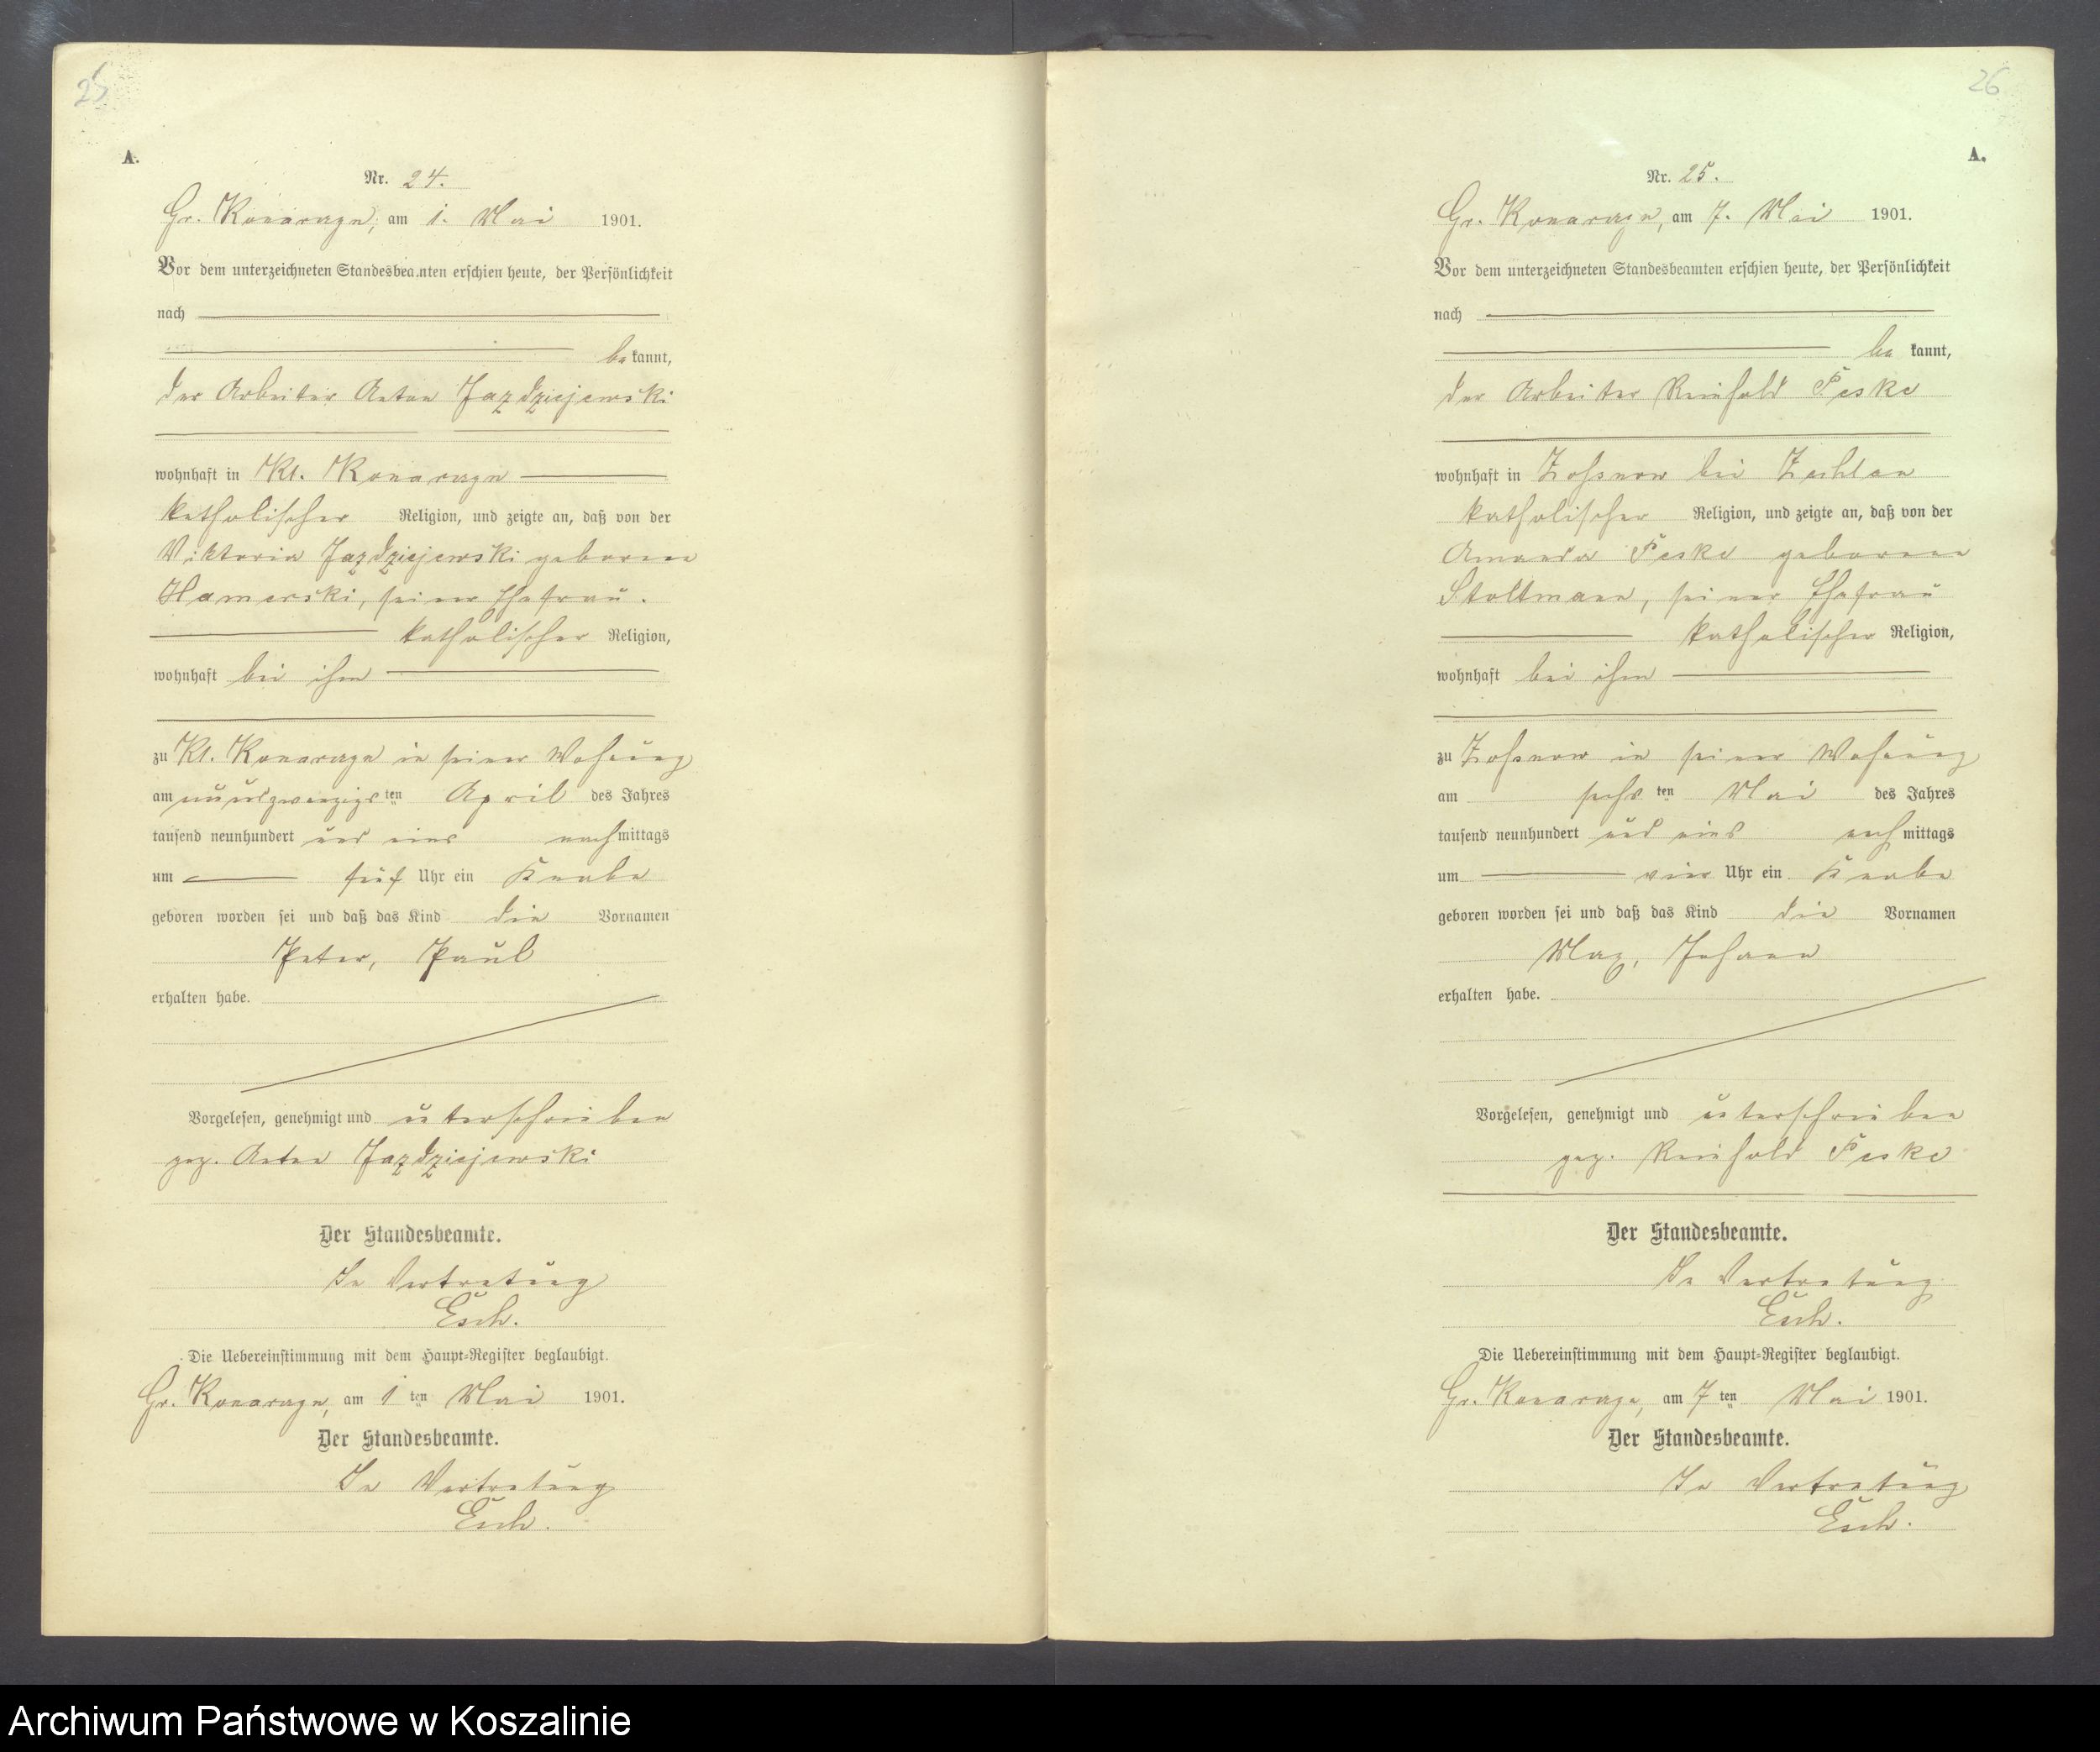 25
A.
Nr. 24.
Gr. Konarczyn, am 1. Mai 1901.
Vor dem unterzeichneten Standesbeamten erschien heute, der Persönlichkeit
nach
be kannt,
der Arbeiter Anton Jazdziejewski
wohnhaft in Kl. Konarczyn
katholischer Religion, und zeigte an, daß von der
Viktoria Jazdziejewski geborene
Hamerski, seiner Ehefrau.
katholischer Religion,
wohnhaft bei ihm
zu Kl. Konarczyn in seiner Wohnung
am neunundzwanzigs ten April des Jahres
tausend neunhundert und eins nach mittags
um fünf Uhr ein Knabe
geboren worden sei und daß das Kind die Vornamen
Peter, Paul
erhalten habe.
Vorgelesen, genehmigt und unterschrieben
gez. Anton Jazdziejewski
Der Standesbeamte.
In Vertretung
Esch.
Die Uebereinstimmung mit dem Haupt-Register beglaubigt.
Gr. Konarczyn, am 1 ten Mai 1901.
Der Standesbeamte.
In Vertretung
Esch.
26
A.
Nr. 25.
Gr. Konarczyn, am 7. Mai 1901.
Vor dem unterzeichneten Standesbeamten erschien heute, der Persönlichkeit
nach
be kannt,
der Arbeiter Reinhold Peske
wohnhaft in Zossnow bei Zechlau
katholischer Religion, und zeigte an, daß von der
Amanda Peske geborene
Stoltmann, seiner Ehefrau
katholischer Religion,
wohnhaft bei ihm
zu Zossnow in seiner Wohnung
am sechs ten Mai des Jahres
tausend neunhundert und eins nach mittags
um vier Uhr ein Knabe
geboren worden sei und daß das Kind die Vornamen
Max, Johann
erhalten habe.
Vorgelesen, genehmigt und unterschrieben
gez. Reinhold Peske
Der Standesbeamte.
In Vertretung
Esch.
Die Uebereinstimmung mit dem Haupt-Register beglaubigt.
Gr. Konarczyn, am 7 ten Mai 1901.
Der Standesbeamte.
In Vertretung
Esch.
Archiwum Państwowe w Koszalinie